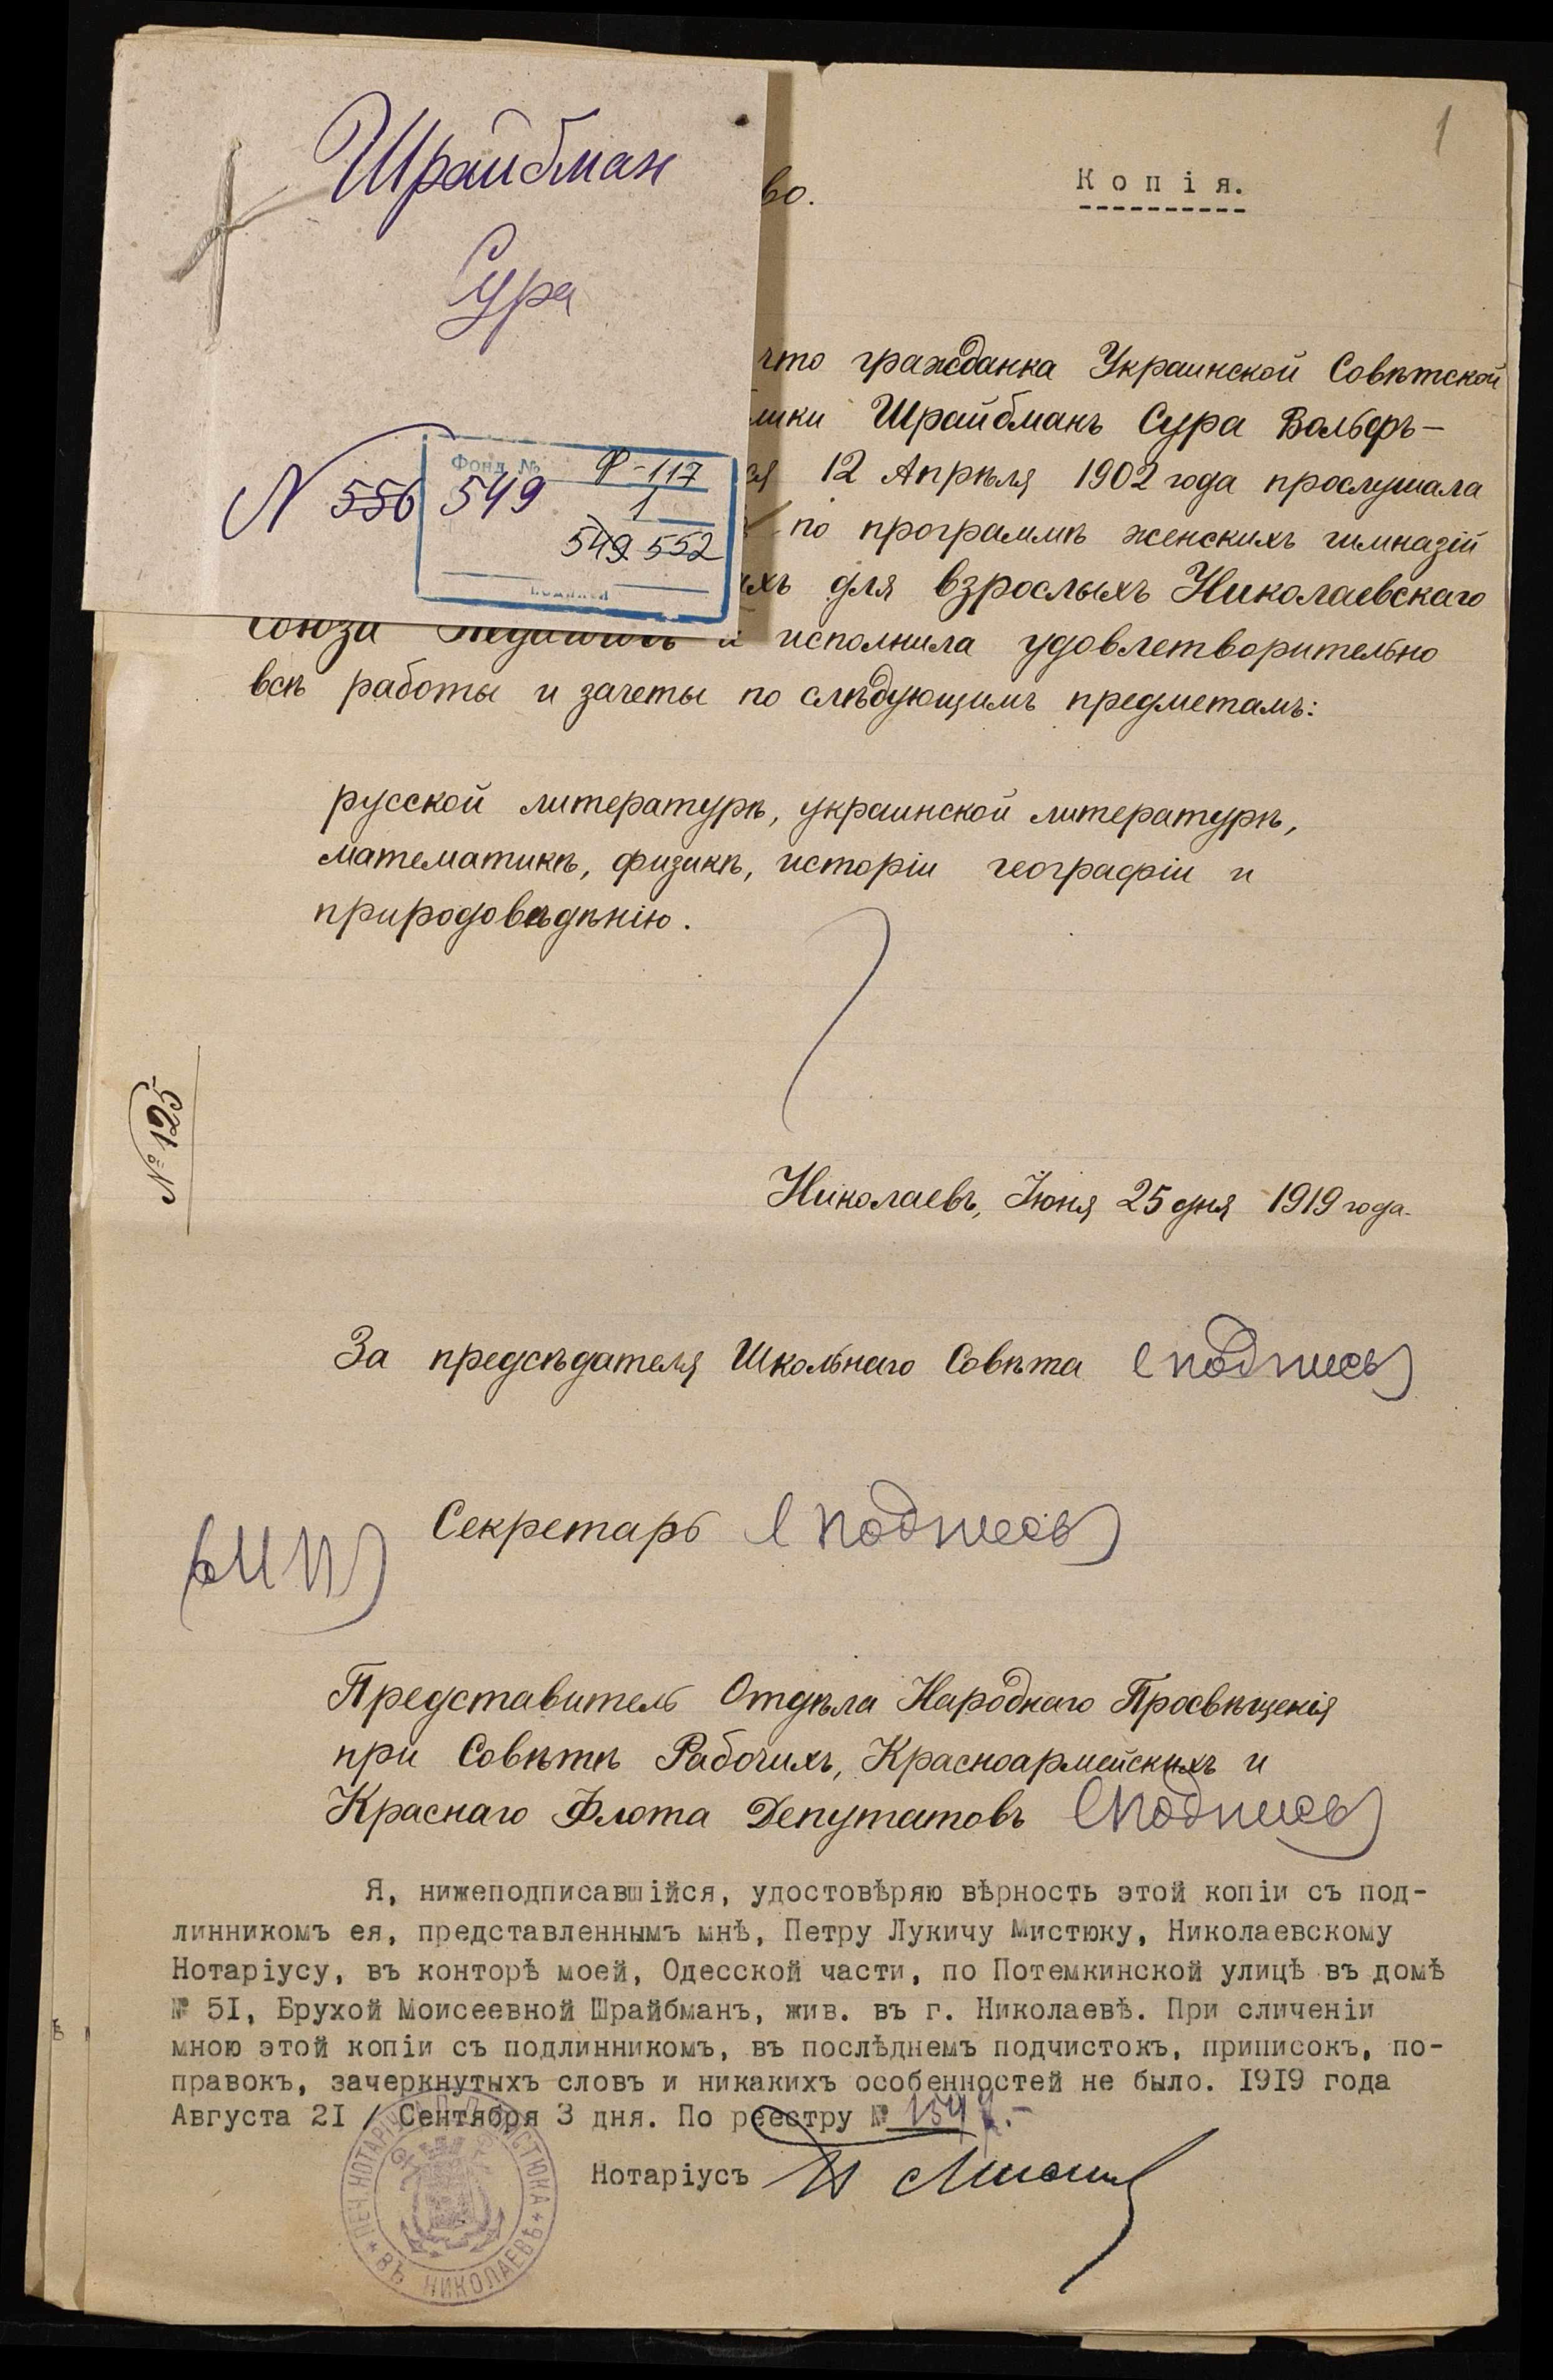 Шрайбман
Сура
N 556 549
Фонд №
Ф-117
1
549 552
1
Копія.
во.
что гражданка Украинской Совѣтской
лики Шрайбманъ Сура Вольфъ-
ся 12 Апрѣля 1902 года прослушала
по программѣ женскихъ гимназій
ихъ для взрослыхъ Николаевскаго
Союза и исполнила удовлетворительно
всѣ работы и зачеты по слѣдующимъ предметамъ:
русской литературѣ, украинской литературѣ,
математикѣ, физикѣ, исторіи географіи и
природовѣдѣнію.
№ 125
Николаевъ, Іюня 25 дня 1919 года.
За предсѣдателя Школьнаго Совѣта (подпись)
Секретарь (подпись)
(М П)
Представитель Отдѣла Народнаго Просвѣщенія
при Совѣтѣ Рабочихъ, Красноармейскихъ и
Краснаго Флота Депутатовъ (подпись)
Я, нижеподписавшійся, удостовѣряю вѣрность этой копіи съ под-
линникомъ ея, представленнымъ мнѣ, Петру Лукичу Мистюку, Николаевскому
Нотаріусу, въ конторѣ моей, Одесской части, по Потемкинской улицѣ въ домѣ
№ 5I, Брухой Моисеевной Шрайбманъ, жив. въ г. Николаевѣ. При сличеніи
мною этой копіи съ подлинникомъ, въ послѣднемъ подчистокъ, приписокъ, по-
правокъ, зачеркнутыхъ словъ и никакихъ особенностей не было. I9I9 года
Августа 2I / Сентября 3 дня. По реестру №
Нотаріусъ
ПЕЧ. НОТАРІУСА П. Л. МИСТЮКА * ВЪ НИКОЛАЕВѢ *